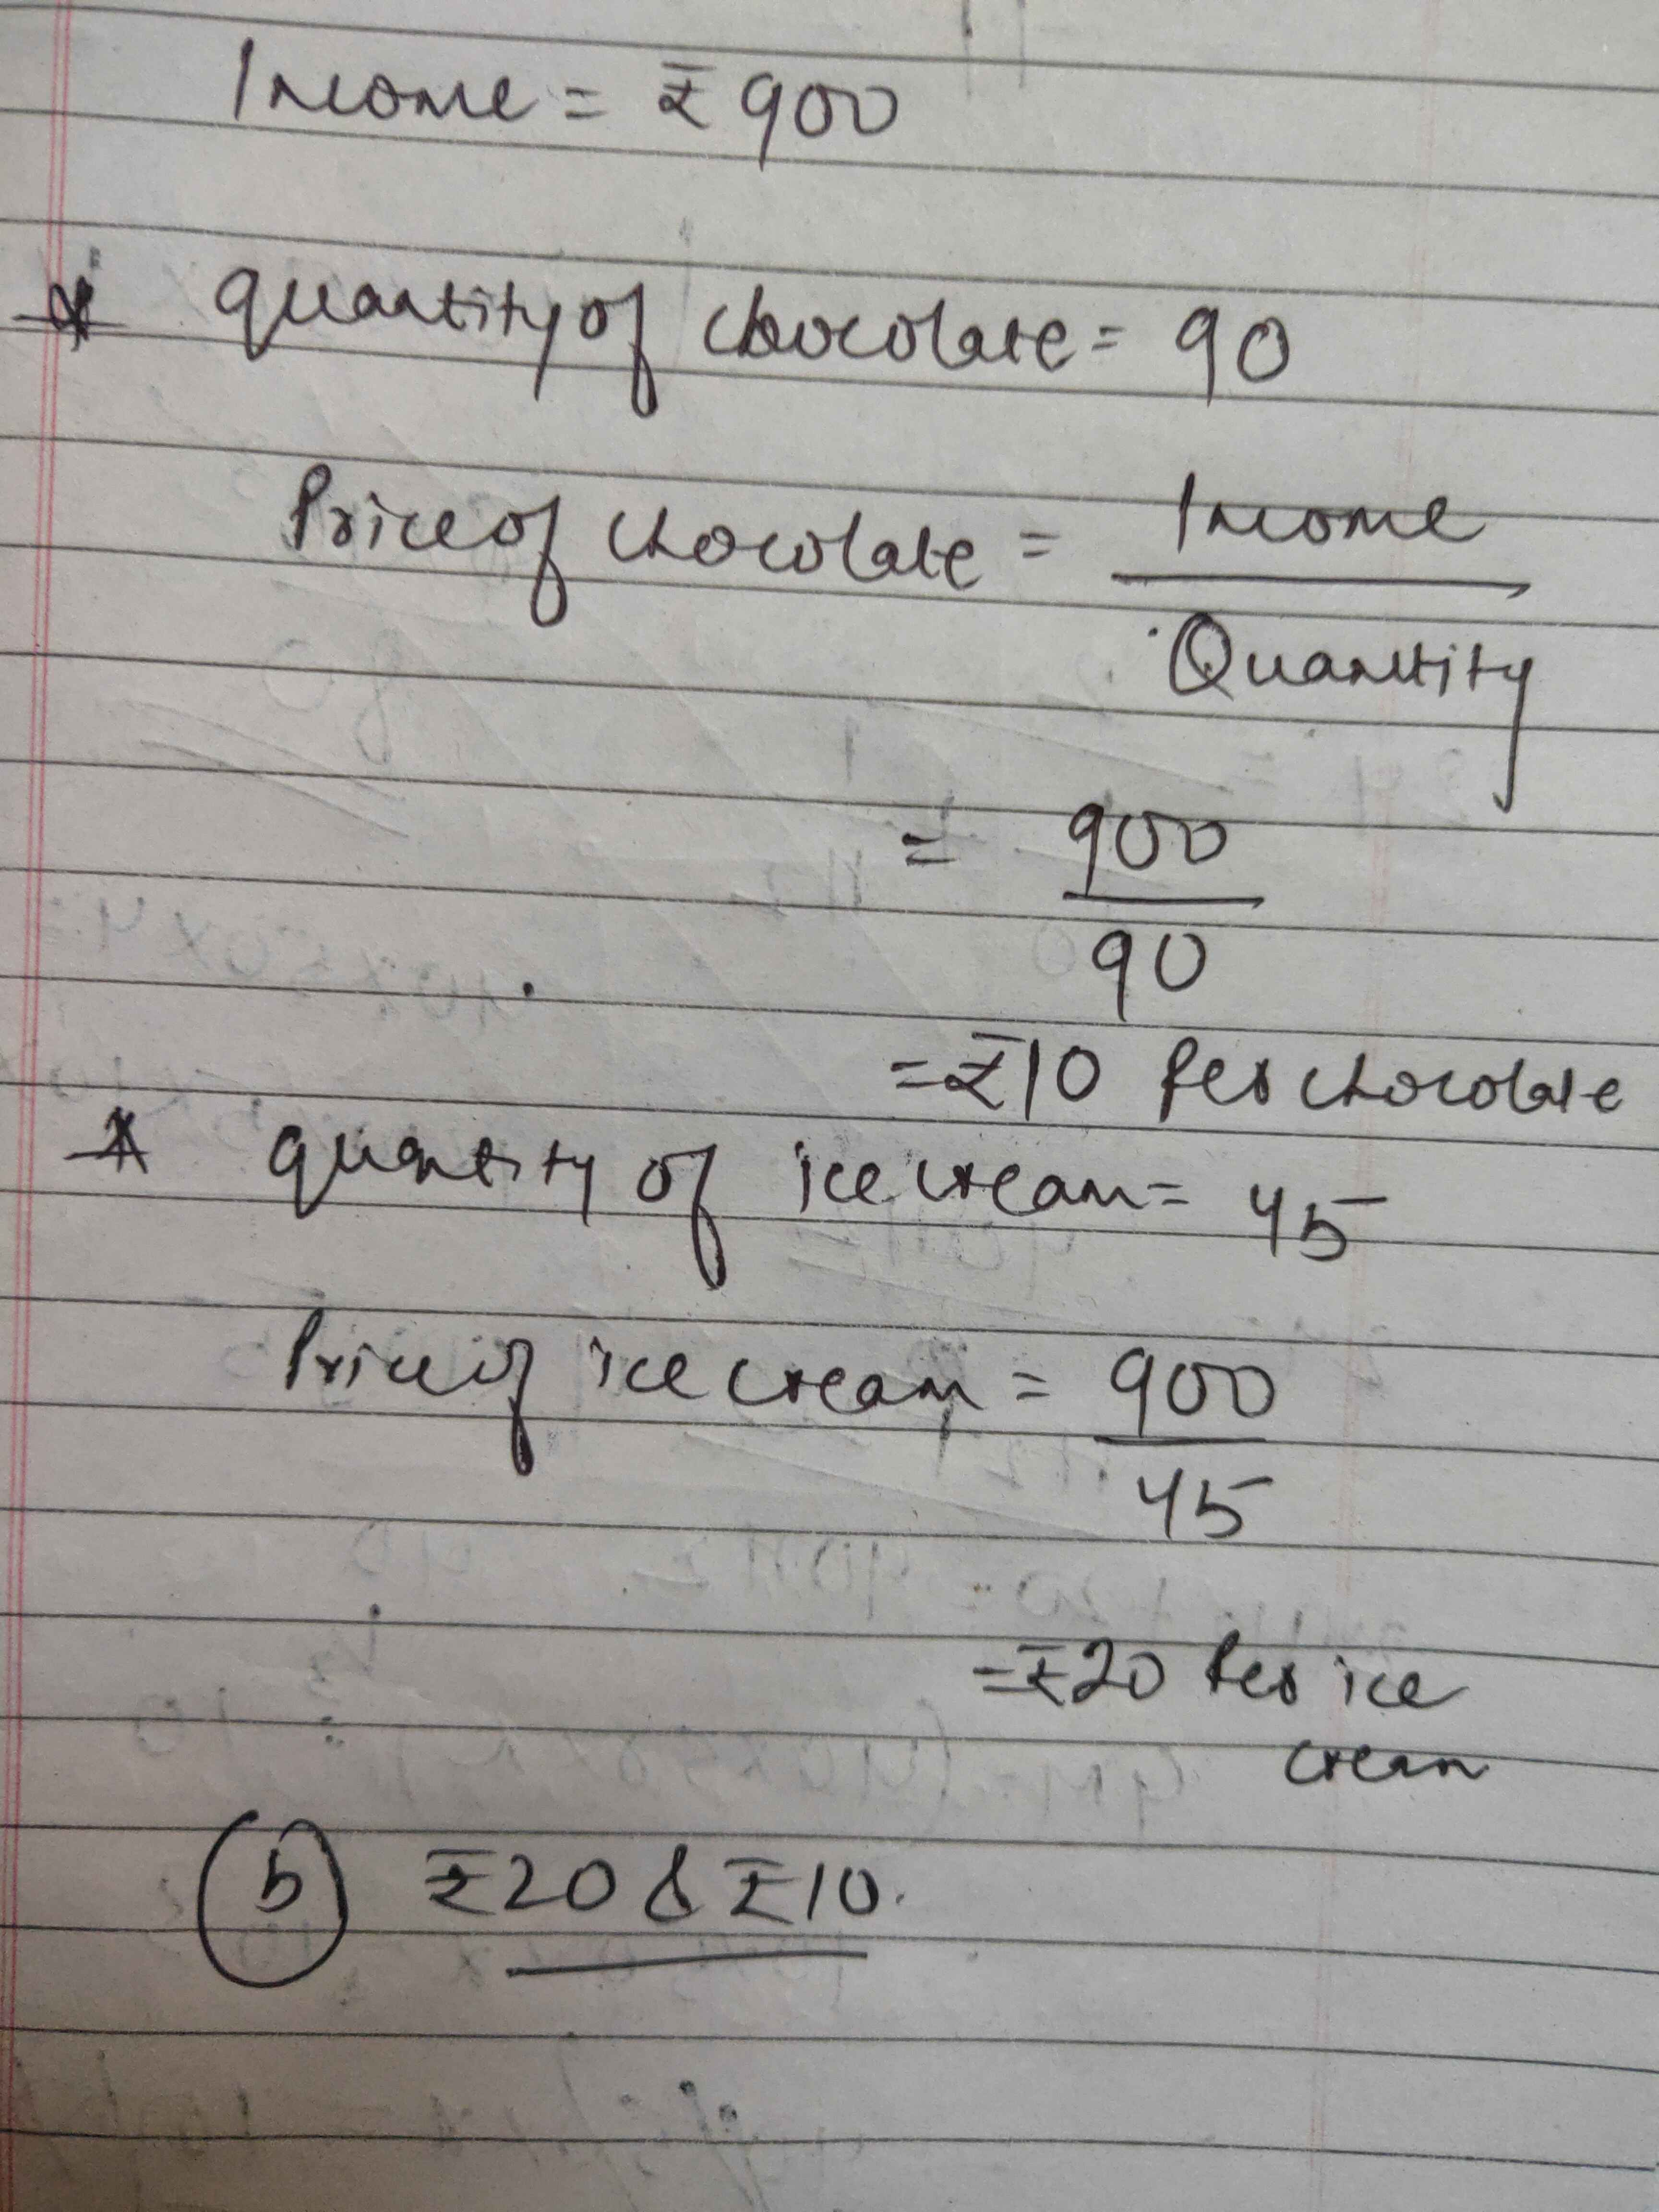 Income = ₹900
* quantity of chocolate = 90
Price of chocolate = Income
Quantity
= 900
90
= ₹10 Per chocolate
* quantity of ice cream = 45
Price of ice cream = 900
45
= ₹20 Per ice
cream
b ₹20 & ₹10.